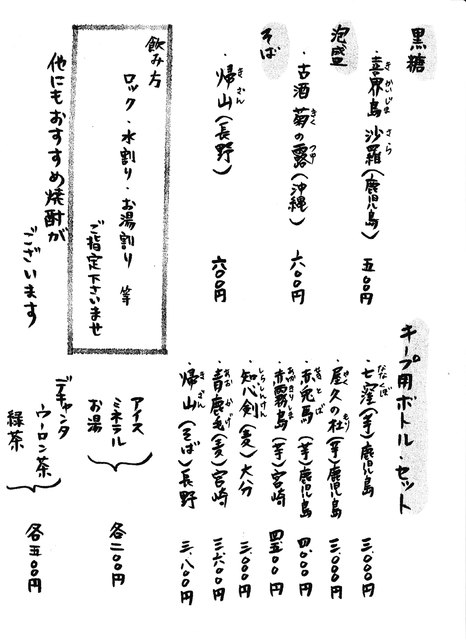 黒糖
・喜界島 沙羅(鹿児島) 五〇〇円
泡盛
・古酒 菊の露(沖縄) 六〇〇円
そば
・帰山(長野) 六〇〇円
飲み方
ロック・水割り・お湯割り 等
ご指定下さいませ
他にもおすすめ焼酎が
ございます
キープ用ボトル・セット
・七窪(芋)鹿児島 三、〇〇〇円
・屋久の杜(芋)鹿児島 三、〇〇〇円
・赤兎馬(芋)鹿児島 四、〇〇〇円
・赤霧島(芋)宮崎 四、五〇〇円
・知心剣(麦)大分 三、〇〇〇円
・青鹿毛(麦)宮崎 三、六〇〇円
・帰山(そば)長野 三、八〇〇円
アイス
ミネラル
お湯
各二〇〇円
デキャンタ
ウーロン茶
緑茶
各五〇〇円